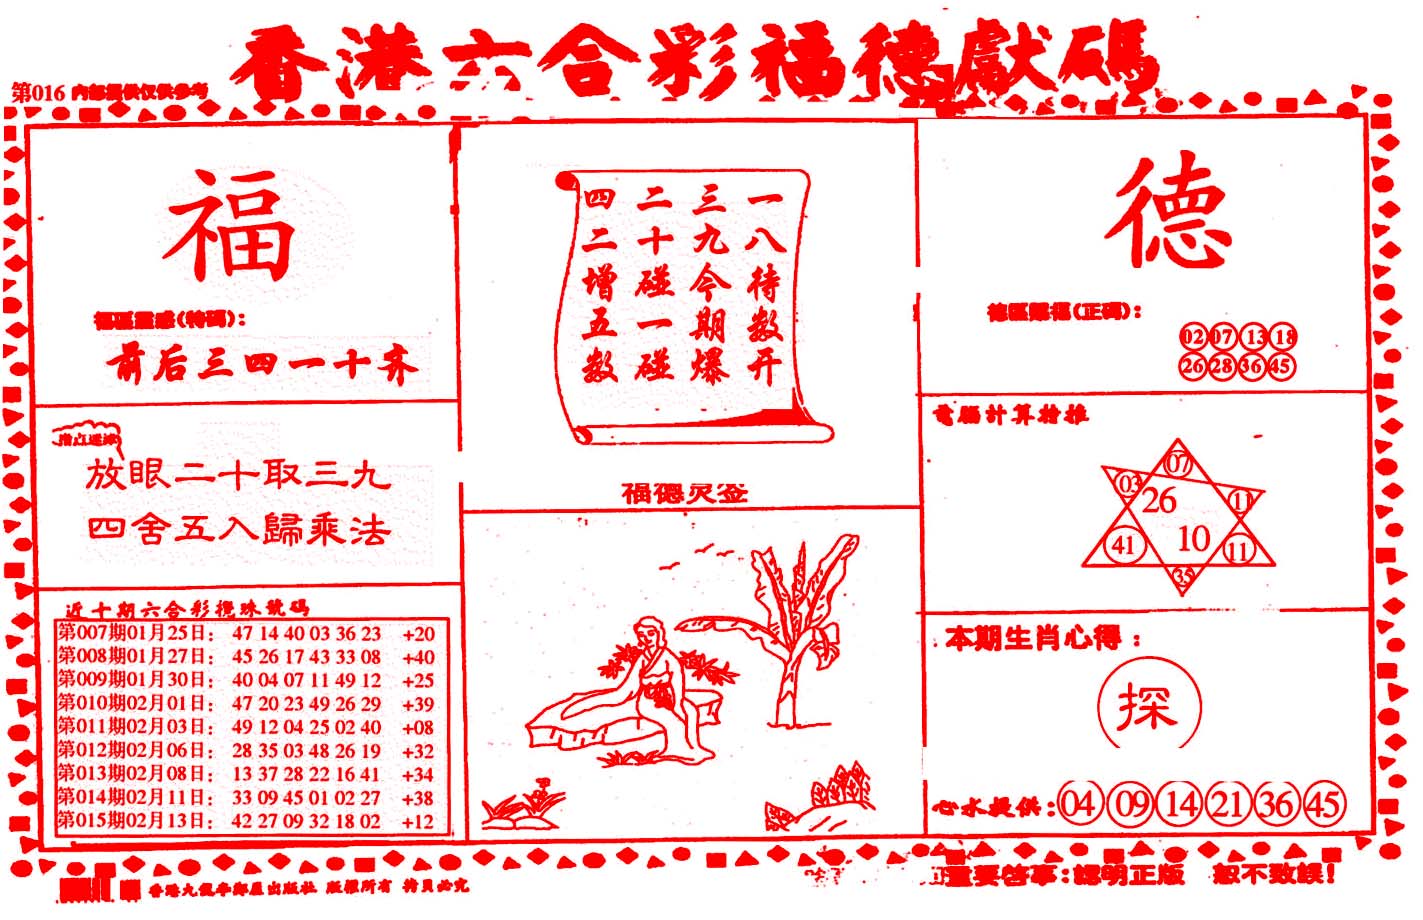 香港六合彩福德獻碼
第016 內部提供仅供參考
福
福區靈感(特碼):
前后三四一十齐
指点迷津
放眼二十取三九
四舍五入歸乘法
近十期六合彩攪珠號碼
第007期01月25日: 47 14 40 03 36 23 +20
第008期01月27日: 45 26 17 43 33 08 +40
第009期01月30日: 40 04 07 11 49 12 +25
第010期02月01日: 47 20 23 49 26 29 +39
第011期02月03日: 49 12 04 25 02 40 +08
第012期02月06日: 28 35 03 48 26 19 +32
第013期02月08日: 13 37 28 22 16 41 +34
第014期02月11日: 33 09 45 01 02 27 +38
第015期02月13日: 42 27 09 32 18 02 +12
一八待数开
三九今期爆
二十碰一碰
四二增五数
福德灵签
德
德區賜福(正碼):
02 07 13 18
26 28 36 45
電腦計算特推
07
03 26 11
41 10 11
35
本期生肖心得:
探
心水提供: 04 09 14 21 36 45
香港九龍 出版社 版權所有 特員必究
重要启事:認明正版 恕不致誤!